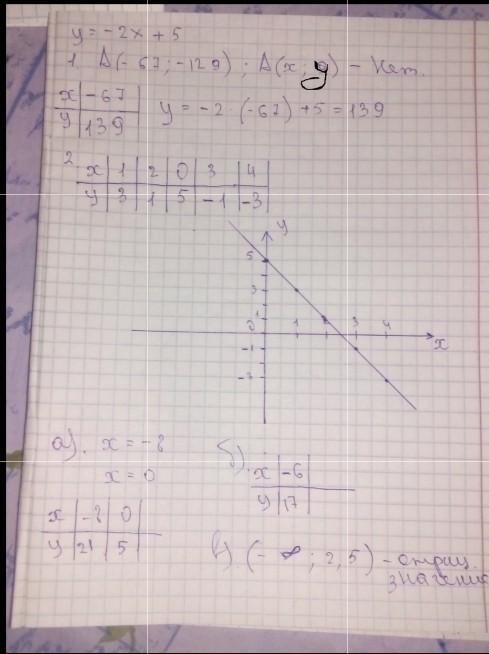 y = -2x + 5
1. A(-67; -129); A(x; y) - Нет.
x | -67
y | 139
y = -2 · (-67) + 5 = 139
2.
x | 1 | 2 | 0 | 3 | 4
y | 3 | 1 | 5 | -1 | -3
y
5
3
1
0 1 3 4 x
-1
-3
а). x = -8
x = 0
x | -8 | 0
y | 21 | 5
б).
x | -6
y | 17
в). (-∞; 2,5) - отриц.
значения